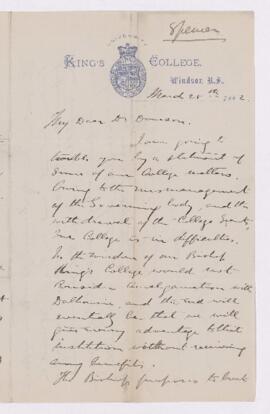 Spencer
UNIVERSITY
KING'S COLLEGE.
Windsor, N.S.
March 28th
My Dear Dr
I am going to
trouble you by a statement of
some of our College matters.
Owing to the mismanagement
of the Governing body, and the
withdrawal of the College Grant,
our College is in difficulties.
In the wisdom of our Bishop
King's College would not
consider amalgamation with
Dalhousie, and the end will
eventually be that we will
give every advantage to that
institution without receiving
any benefits.
The Bishop purposes to